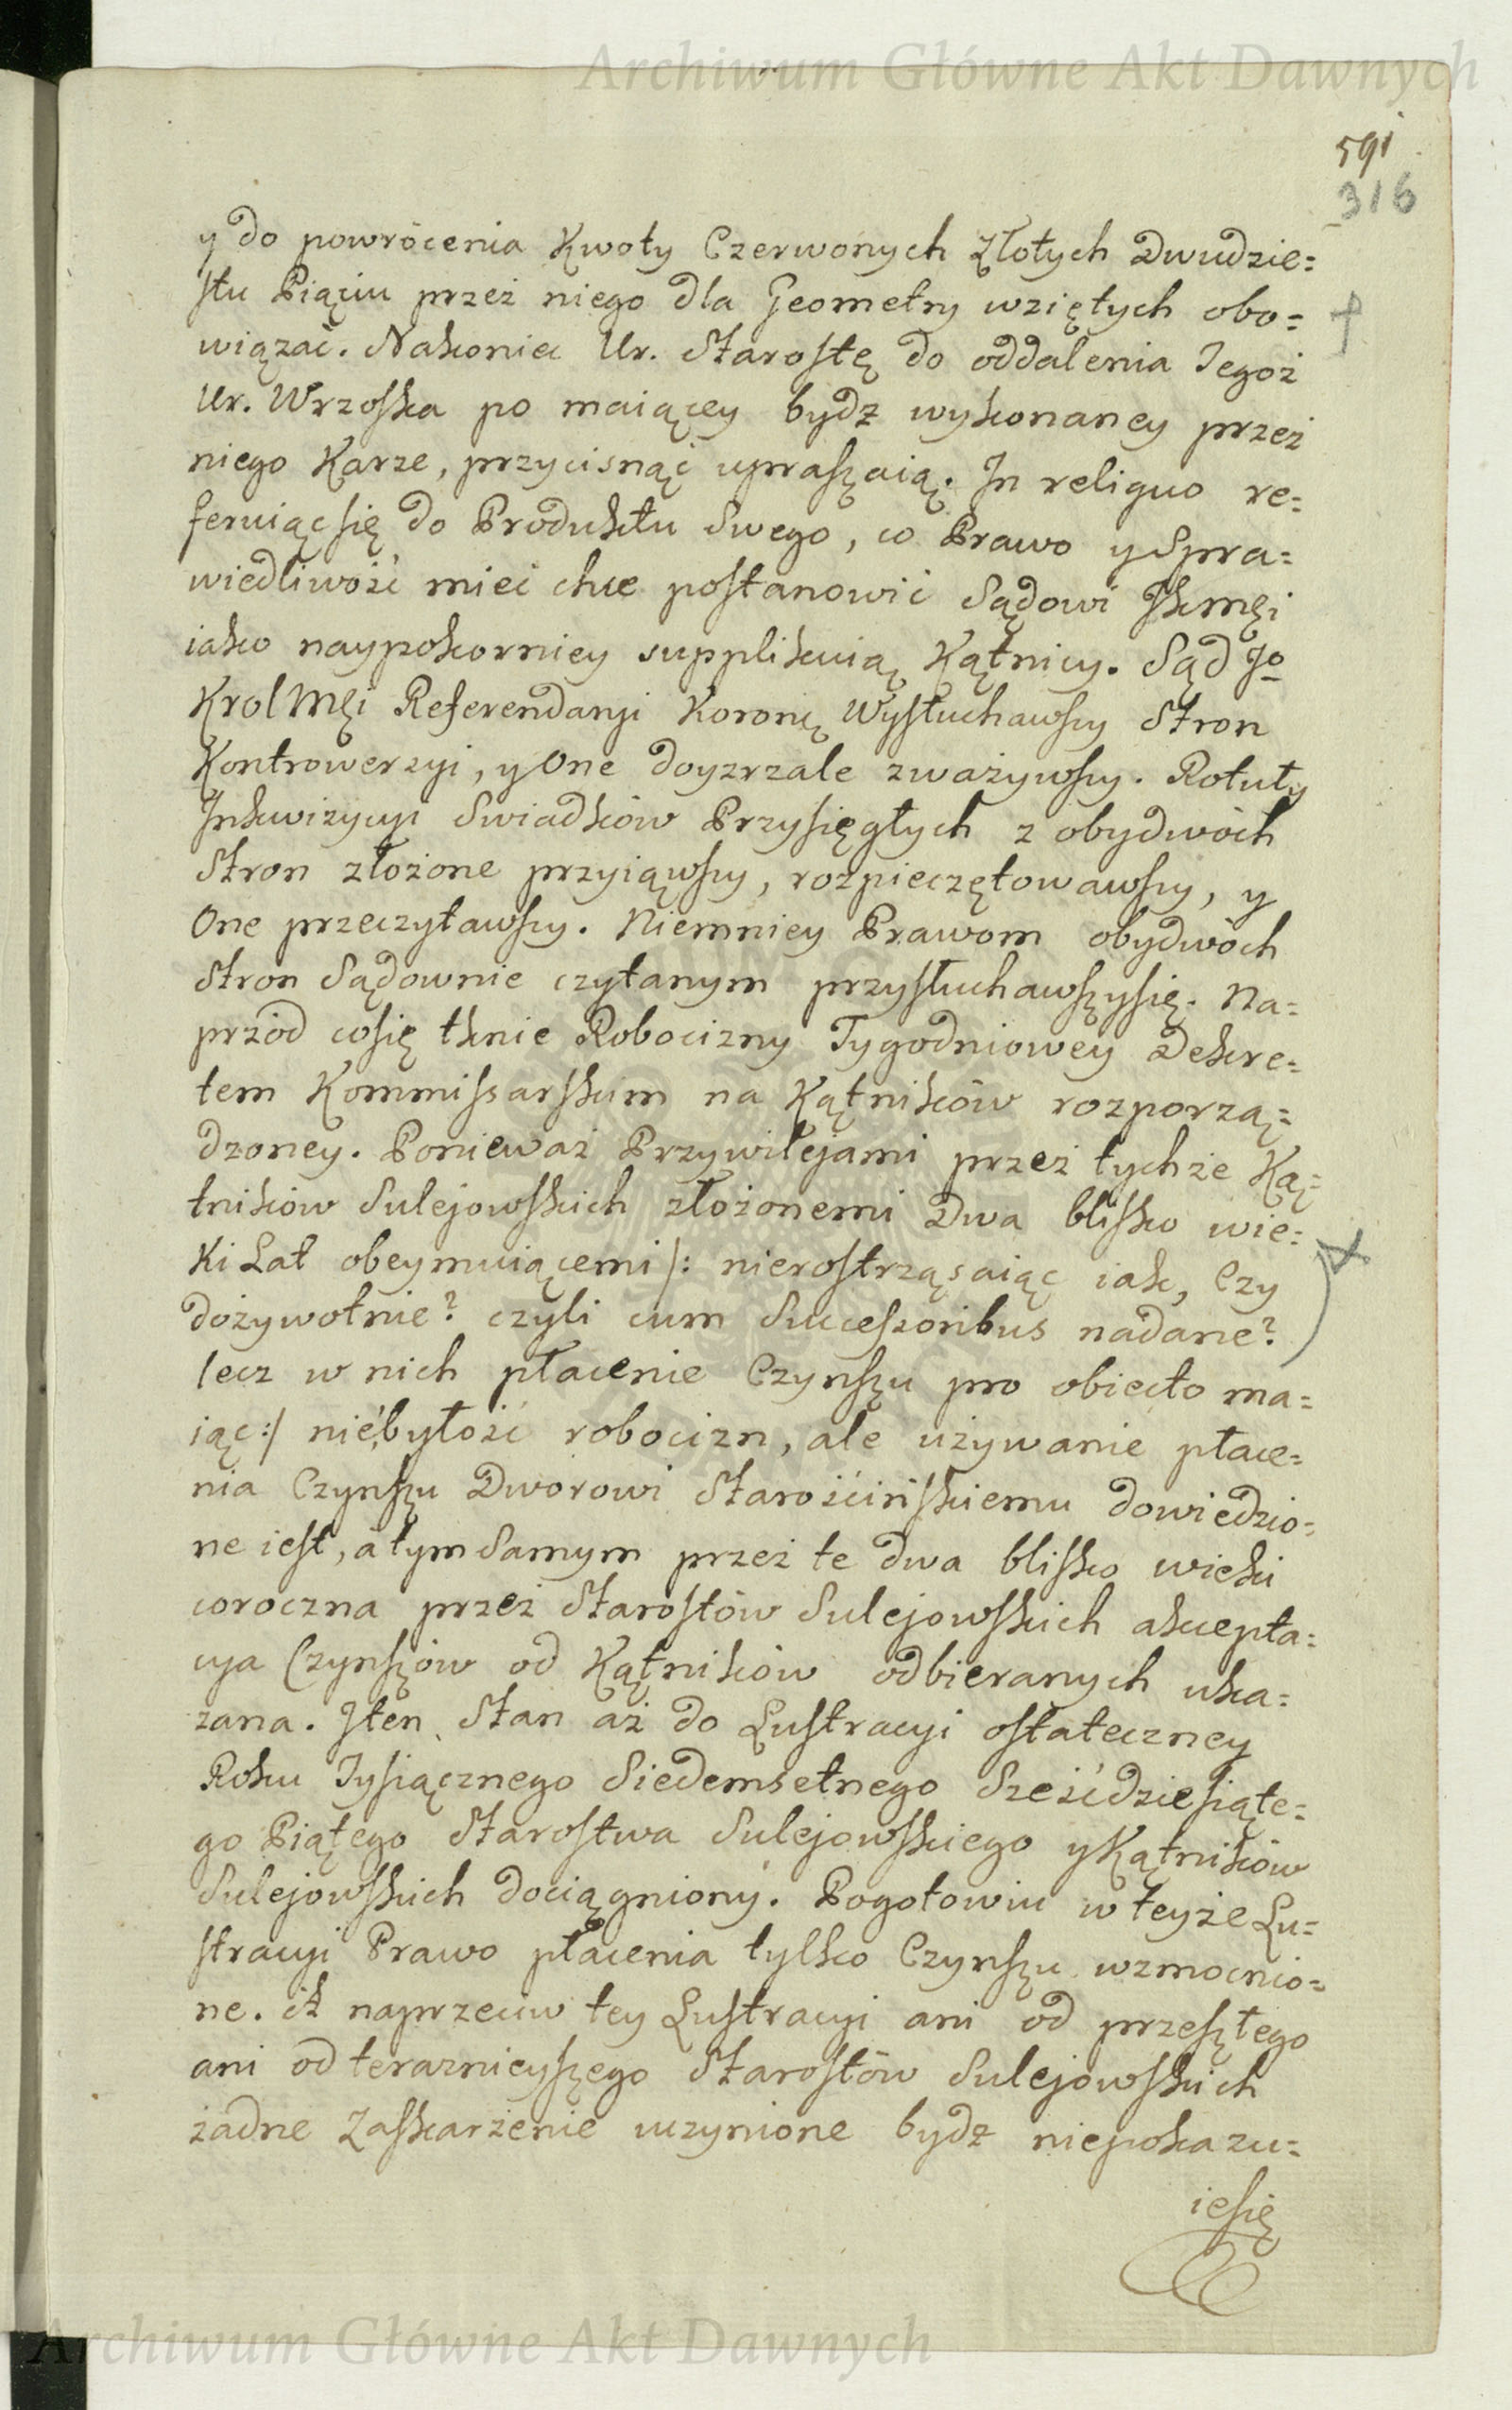 Archiwum Główne Akt Dawnych
591
316
y do powrócenia Kwoty Czerwonych Złotych Dwudzie=
stu Piąciu przez niego dla Geometry wziętych obo=
wiązać. Nakoniec Ur. Starostę do oddalenia Jegoż
Ur. Wrzoska po maiącey bydz wykonaney przez
niego Karze, przycisnąć upraszaią. In reliquo re=
feruiąc się do Produktu Swego, co Prawo y Spra=
wiedliwość mieć chce postanowić Sądowi JKmci
iako naypokorniey supplikuią Kątnicy. Sąd Jo
Krol Mci Referendaryi Koronney Wysłuchawszy Stron
Kontrowerzyi, y One doyzrzale zważywszy. Rotuły
Inkwizycyi Swiadków Przysięgłych z obydwóch
Stron złożone przyiąwszy, rozpieczętowawszy, y
One przeczytawszy. Niemniey Prawom obydwóch
Stron Sądownie czytanym przysłuchawszysię. Na=
przód cosię tknie Robocizny Tygodniowey Dekre=
tem Kommissarskim na Kątników rozporzą=
dzoney. Ponieważ Przywilejami przez tychże Ką=
tników Sulejowskich złożonemi Dwa blisko wie=
ki Lat obeymuiącemi /: nierostrząsaiąc iak, Czy
dożywotnie? czyli cum Successoribus nadane?
lecz w nich płacenie Czynszu pro obiecto ma=
iąc :/ niebytość robocizn, ale używanie płace=
nia Czynszu Dworowi Starościńskiemu dowiedzio=
ne iest, a tym Samym przez te dwa blisko wieki
coroczna przez Starostów Sulejowskich akcepta=
cya Czynszów od Kątników odbieranych uka=
zana. Iten Stan aż do Lustracyi ostateczney
Roku Tysiącznego Siedemsetnego Sześćdziesiąte=
go Piątego Starostwa Sulejowskiego y Kątników
Sulejowskich dociągniony. Pogotowiu w teyże Lu=
stracyi Prawo płacenia tylko Czynszu wzmocnio=
ne. A naprzeciw tey Lustracyi ani od przeszłego
ani od teraznieyszego Starostów Sulejowskich
żadne Zaskarżenie uczynione bydz niepokazu=
iesię
Archiwum Główne Akt Dawnych